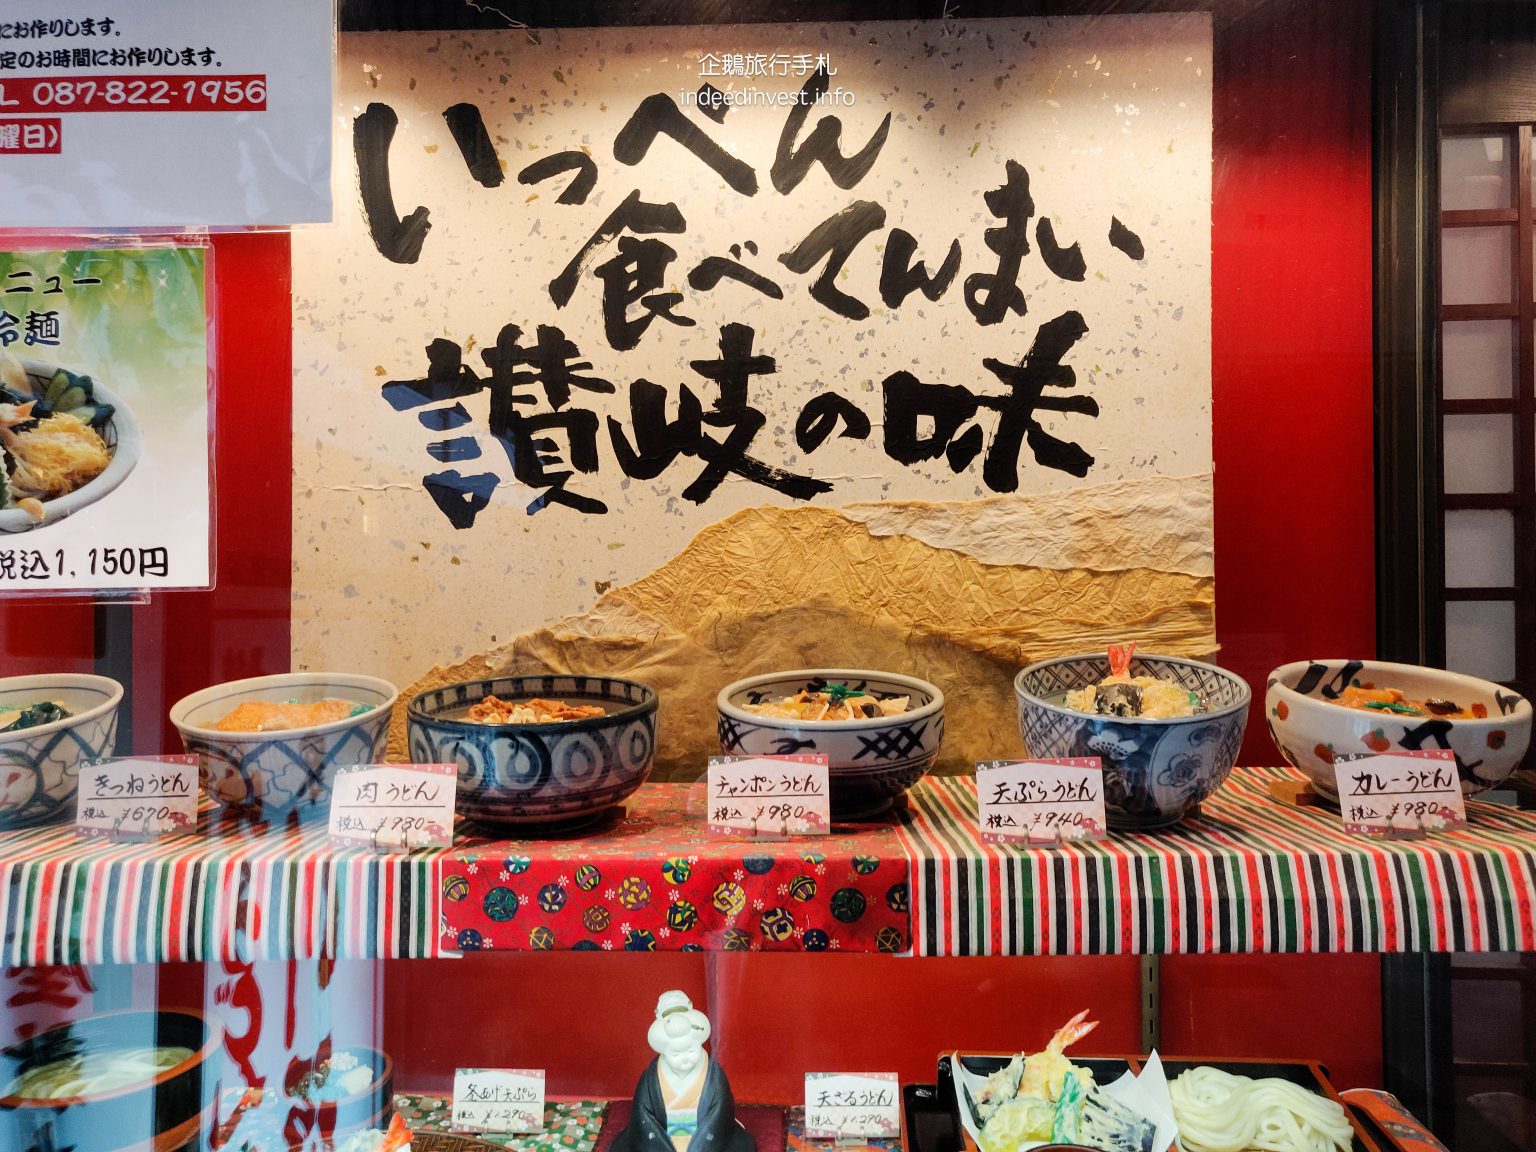 にお作りします。
定のお時間にお作りします。
L 087-822-1956
曜日)
企鵝旅行手札
indeedinvest.info
いっぺん
食べてんまい
讃岐の味
ニュー
冷麺
税込1,150円
きつねうどん
税込 ¥670-
肉うどん
税込 ¥980-
チャンポンうどん
税込 ¥980-
天ぷらうどん
税込 ¥940-
カレーうどん
税込 ¥980-
税込 ¥1,290-
天ざるうどん
税込 ¥1,290-